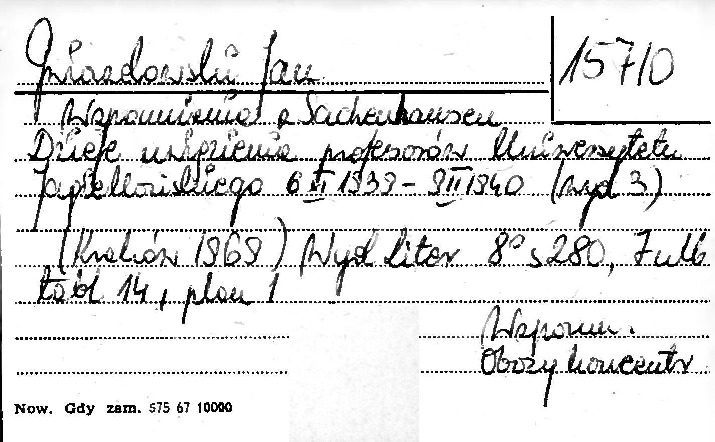 Gwiazdowski Jan
15710
Wspomnienia z Sachsenhausen
Dzieje uwięzienia profesorów Uniwersytetu
Jagiellońskiego 6 XI 1939 - 9 II 1940 (wyd 3)
(Kraków 1969) Wyd Liter 8° s 280,
tabl 14, plan 1
Wspomn.
Obozy koncentr
Now. Gdy zam. 575 67 10000